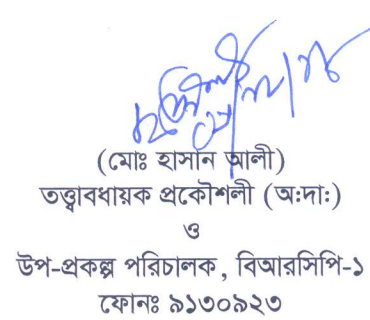 (মোঃ হাসান আলী)
তত্ত্বাবধায়ক প্রকৌশলী (অ:দা:)
ও
উপ-প্রকল্প পরিচালক, বিআরসিপি-১
ফোনঃ ৯১৩০৯২৩